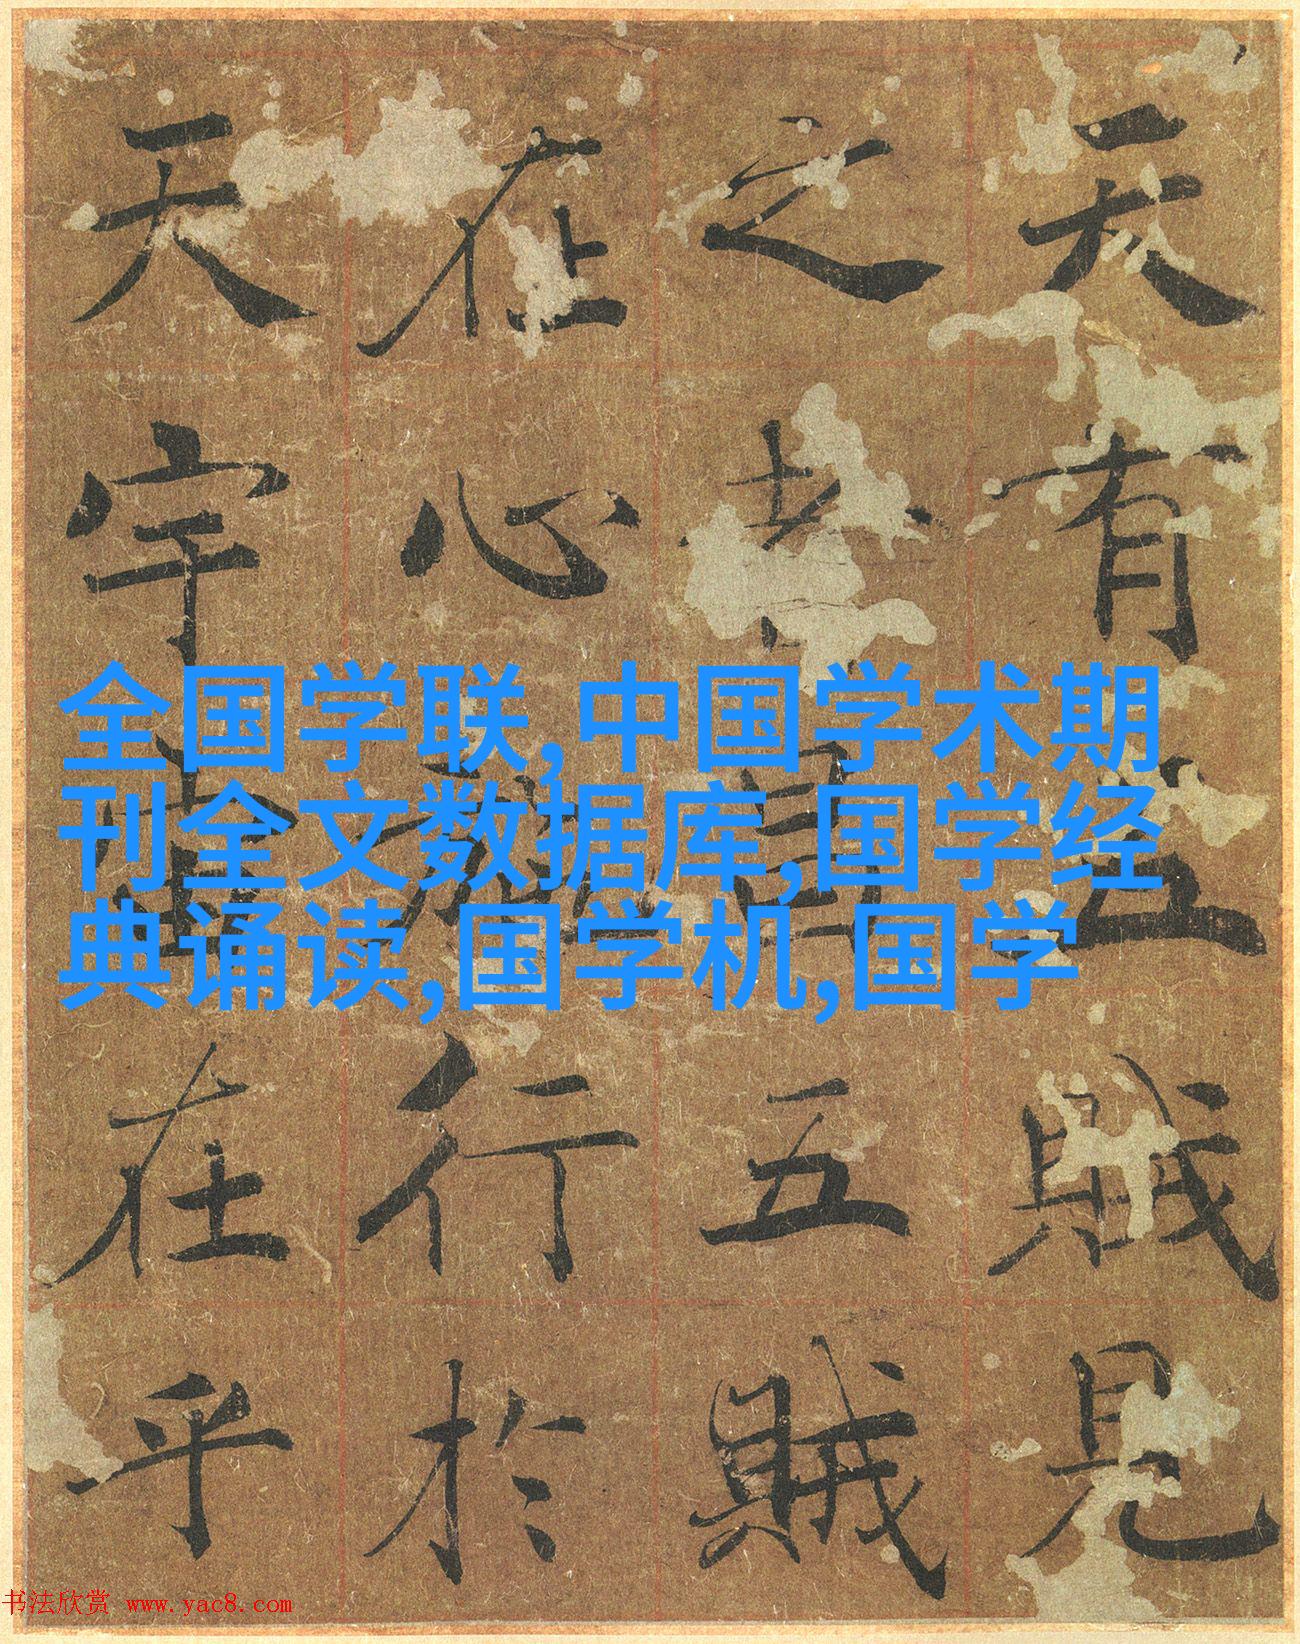 天有五賊見
之者昌五賊
在心施行於
天宇宙在乎
全国学联,中国学术期
刊全文数据库,国学经
典诵读,国学机,国学
书法欣赏 www.yac8.com